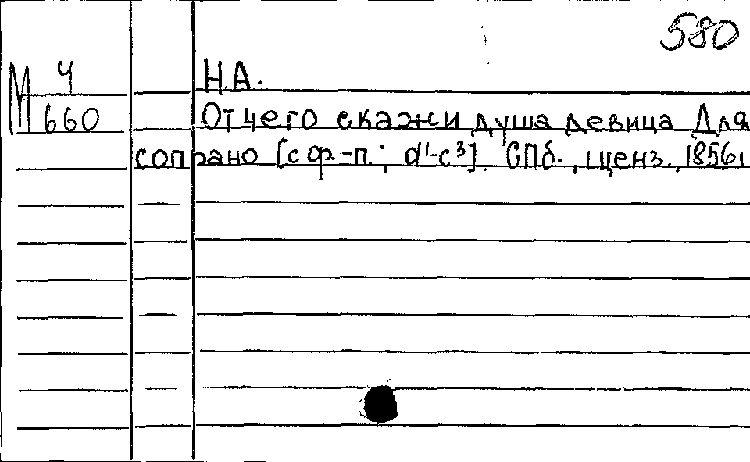 580
М 4 Н.А.
660 Отчего скажи душа девица Для
сопрано [с ф-п.; d¹-c³]. СПб., ценз. 1856,